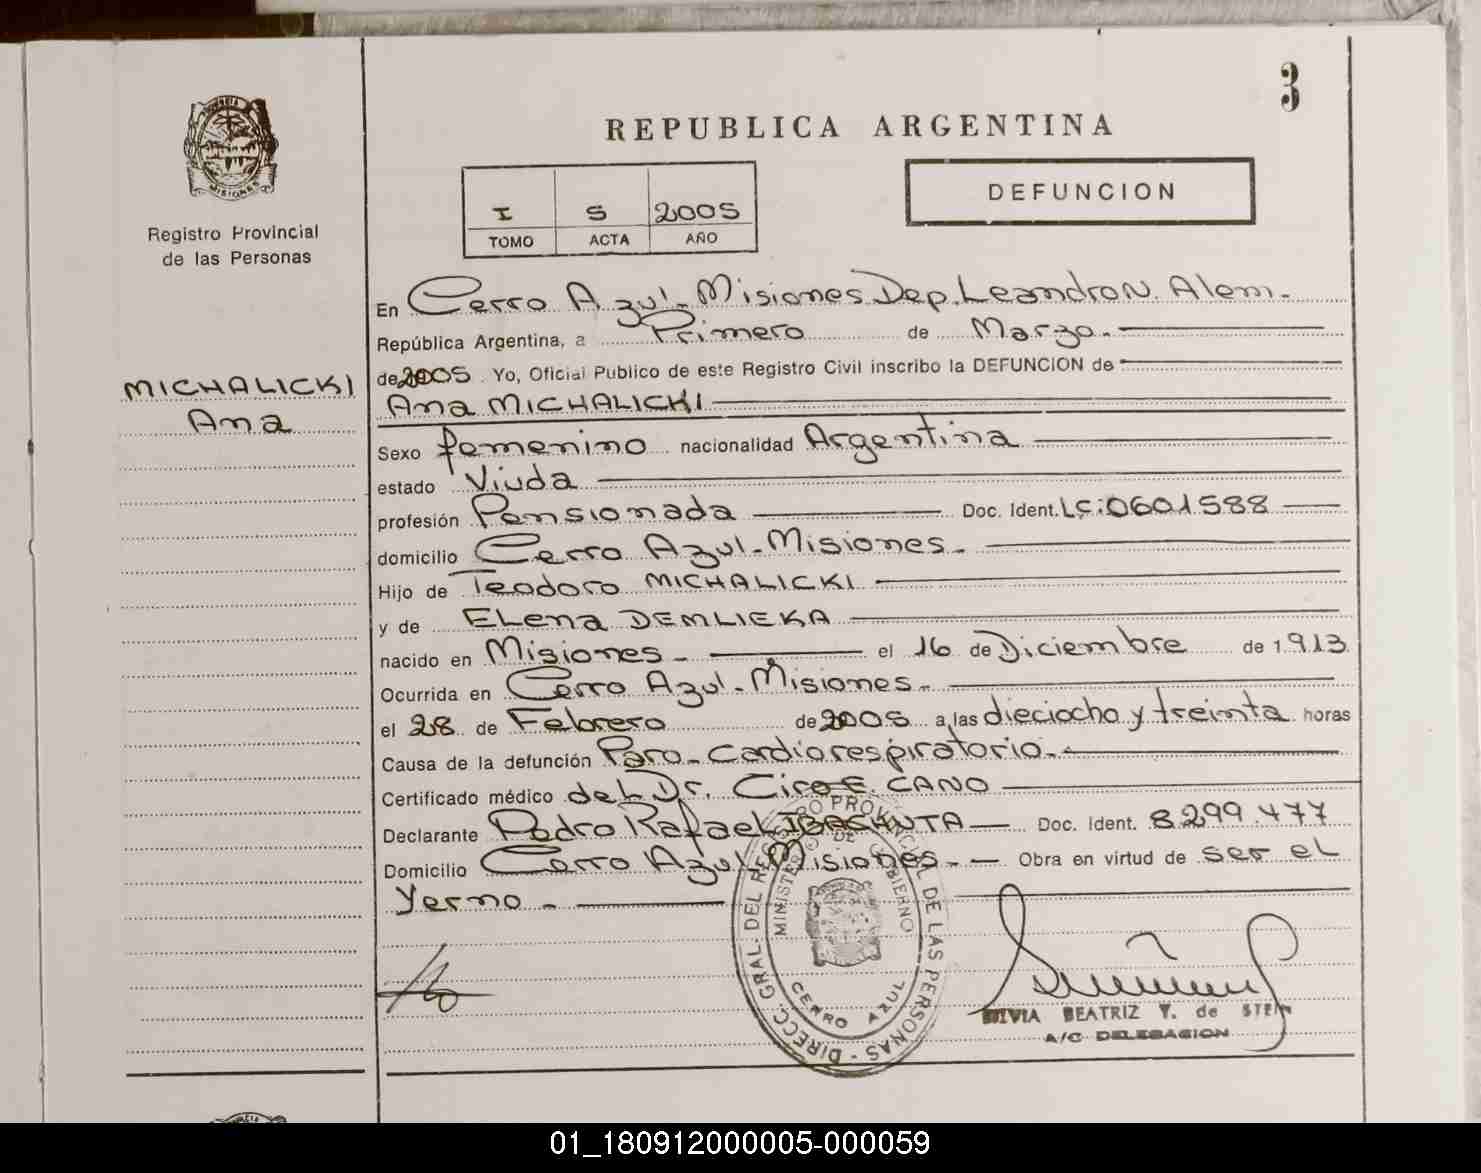 3
REPUBLICA ARGENTINA
I S 2005
TOMO ACTA AÑO
DEFUNCION
MISIONES
Registro Provincial
de las Personas
MICHALICKI
Ana
En Cerro Azul - Misiones Dep. Leandro N. Alem.
República Argentina, a Primero de Marzo.
de 2005. Yo, Oficial Publico de este Registro Civil inscribo la DEFUNCION de
Ana MICHALICKI
Sexo femenino nacionalidad Argentina
estado Viuda
profesión Pensionada Doc. Ident. LC: 0601588
domicilio Cerro Azul - Misiones -
Hijo de Teodoro MICHALICKI
y de Elena DEMLIEKA
nacido en Misiones - el 16 de Diciembre de 1.913
Ocurrida en Cerro Azul - Misiones -
el 28 de Febrero de 2005 a las dieciocho y treinta horas
Causa de la defunción Paro - Cardiorespiratorio -
Certificado médico del Dr. Ciro E. CANO
Declarante Pedro Rafael Doc. Ident. 8299.477
Domicilio Cerro Azul Misiones - Obra en virtud de ser el
Yerno -
DIRECC. GRAL. DEL REGISTRO PROVINCIAL DE LAS PERSONAS -
MINISTERIO DE GOBIERNO
CERRO AZUL
SILVIA BEATRIZ Y. de STEIN
A/C DELEGACION
01_180912000005-000059